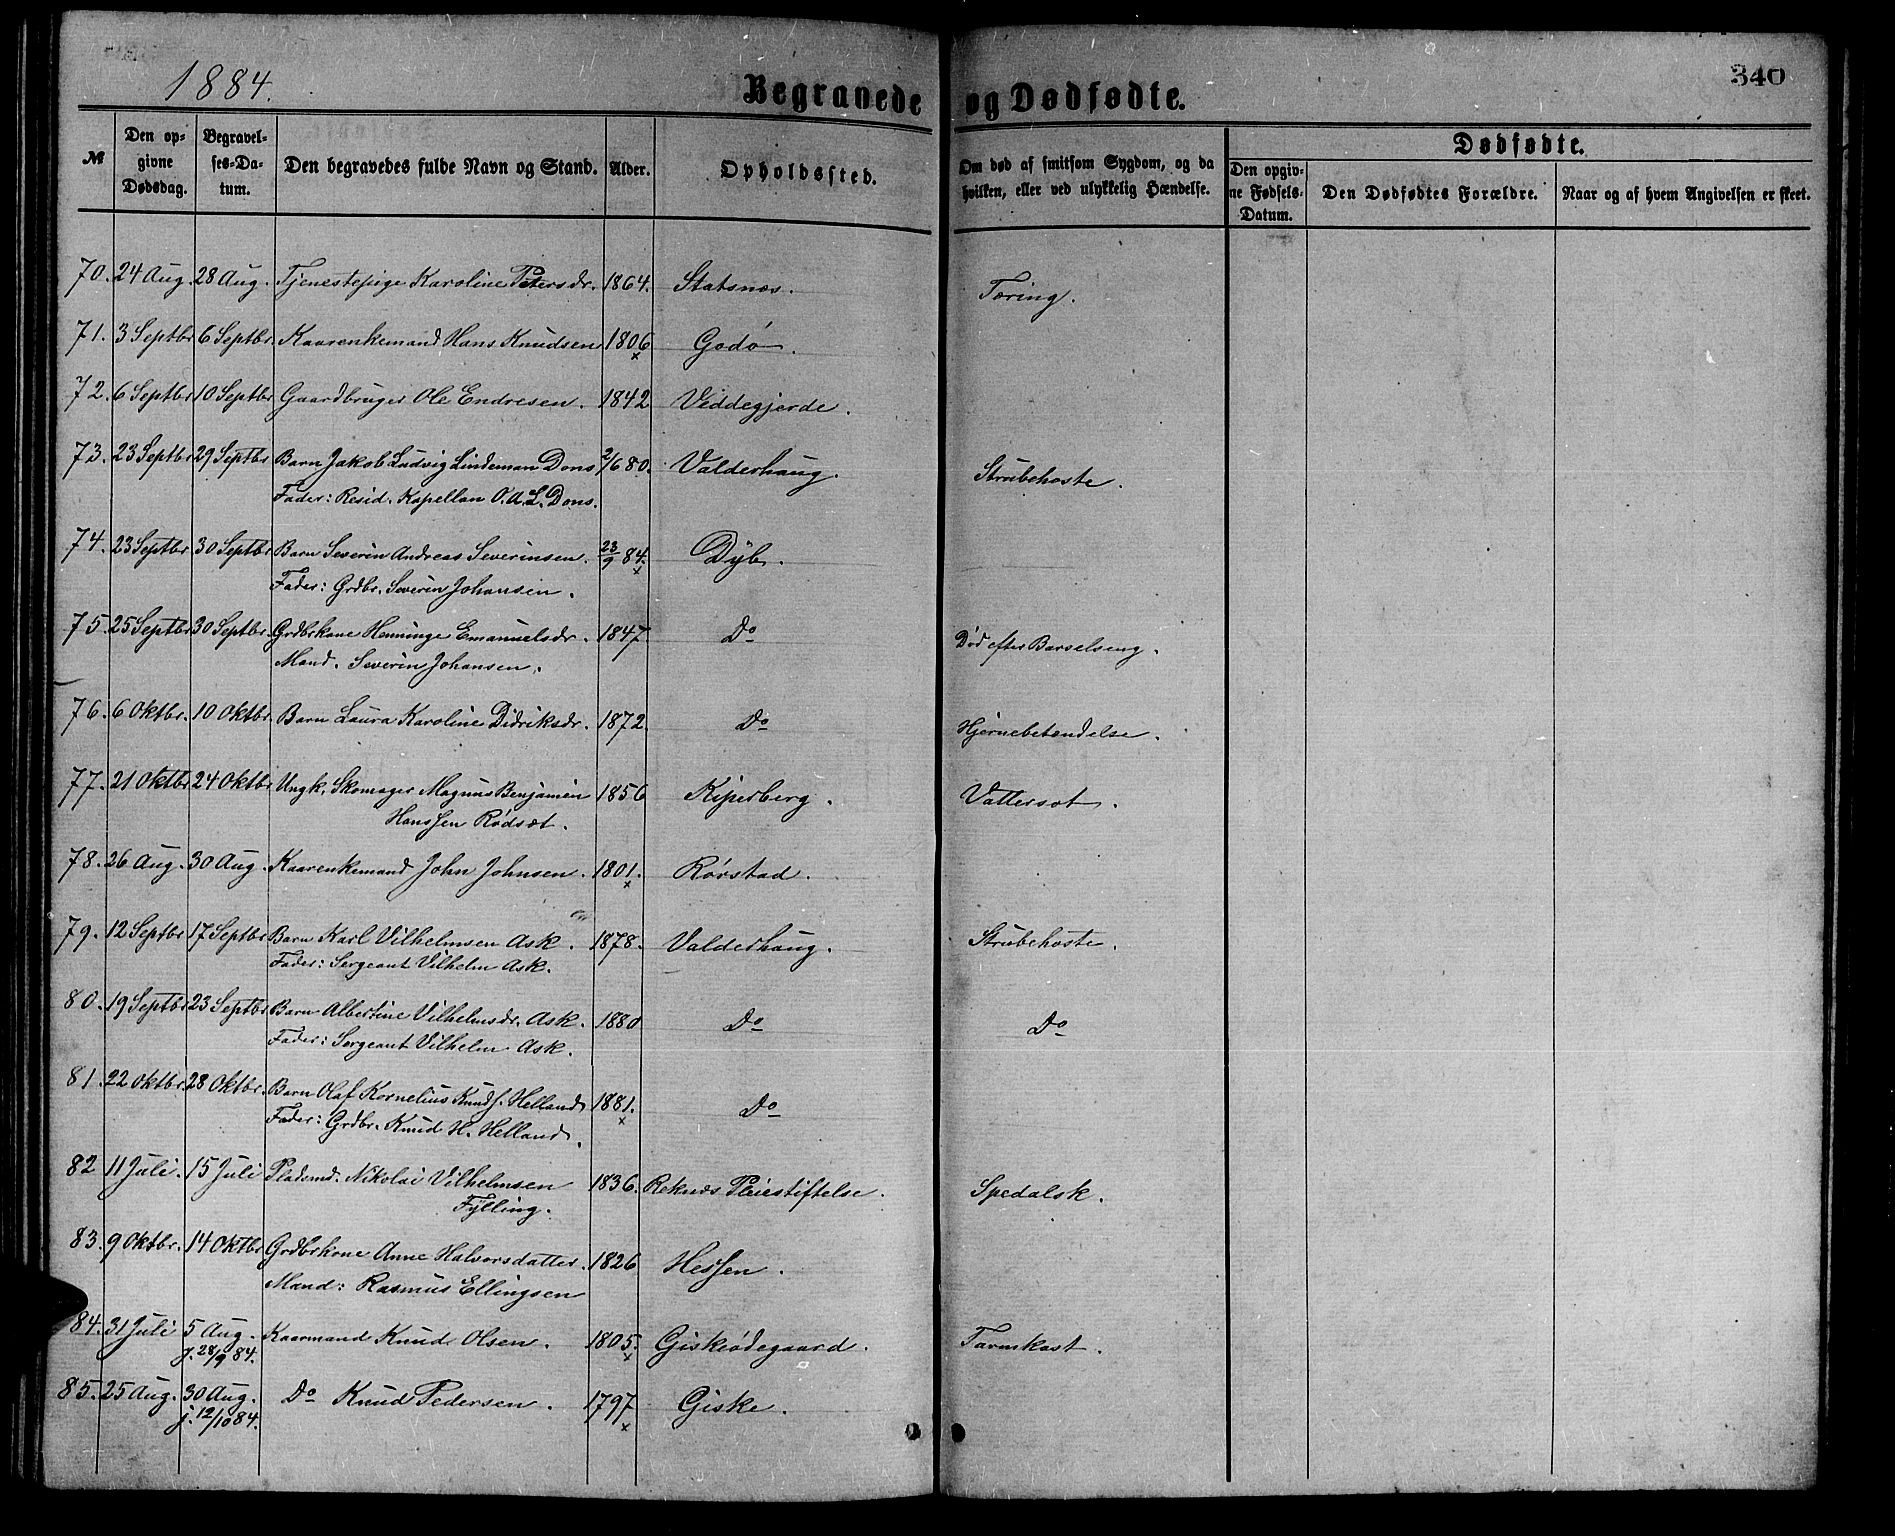 1884.
Begravede og Dødfødte.
340
№
Den opgivne Dødsdag.
Begravelses-Datum.
Den begravedes fulde Navn og Stand.
Alder.
Opholdssted.
Om død af smitsom Sygdom, og da hvilken, eller ved ulykkelig Hændelse.
Dødfødte.
Den opgivne Fødsels-Datum.
Den Dødfødtes Forældre.
Naar og af hvem Angivelsen er skeet.
70. 24 Aug. 28 Aug. Tjenestepige Karoline Petersdr. 1864. Statsnæs. Tæring.
71. 3 Septbr 6 Septbr. Kaarenkemand Hans Knudsen 1806 x Godø.
72. 6 Septbr 10 Septbr Gaardbruger Ole Endresen. 1842 Veddegjerde.
73. 23 Septbr 29 Septbr Barn Jakob Ludvig Lindeman Dons 2/6 80. Valderhaug. Strubehoste.
Fader: Resid. Kapellan O. A. L. Dons.
74. 23 Septbr 30 Septbr Barn Severin Andreas Severinsen. 23/9 84. x Dyb.
Fader: Grdbr. Severin Johansen.
75. 25 Septbr 30 Septbr. Grdbrkone Henninge Emanuelsdr. 1847. Do Død efter Barselseng.
Mand. Severin Johansen.
76. 6 Oktbr. 10 Oktbr. Barn Laura Karoline Didriksdr. 1872. Do Hjernebetændelse.
77. 21 Oktbr 24 Oktbr Ungk. Skomager Magnus Benjamin 1856 Kiperberg. Vattersot.
Hanssen Rødsæt.
78. 26 Aug. 30 Aug. Kaarenkemand John Johnsen. 1801. x Rørstad.
79. 12 Septbr 17 Septbr Barn Karl Vilhelmsen Ask. 1878. Valderhaug. Strubehoste.
Fader: Sergeant Vilhelm Ask.
80. 19 Septbr 23 Septbr Barn Albertine Vilhelmsdr. Ask. 1880 Do Do
Fader: Sergeant Vilhelm Ask.
81. 22 Oktbr. 28 Oktbr. Barn Olaf Kornelius Knuds. Helland 1881. x Do
Fader: Grdbr. Knud H. Helland.
82 11 Juli. 15 Juli Pladsmd. Nikolai Vilhelmsen 1836. Reknæs Pleiestiftelse. Spedalsk.
Fylling.
83. 9 Oktbr. 14 Oktbr Grdbrkone Anne Halvorsdatter. 1826 Hessen.
Mand: Rasmus Ellingsen
84. 31 Juli 5 Aug. Kaarmand Knud Olsen. 1805. x Giskeødegaard. Tarmkast.
j. 28/9 84.
85. 25 Aug. 30 Aug. Do Knud Pedersen. 1797 x Giske.
j. 12/10 84.